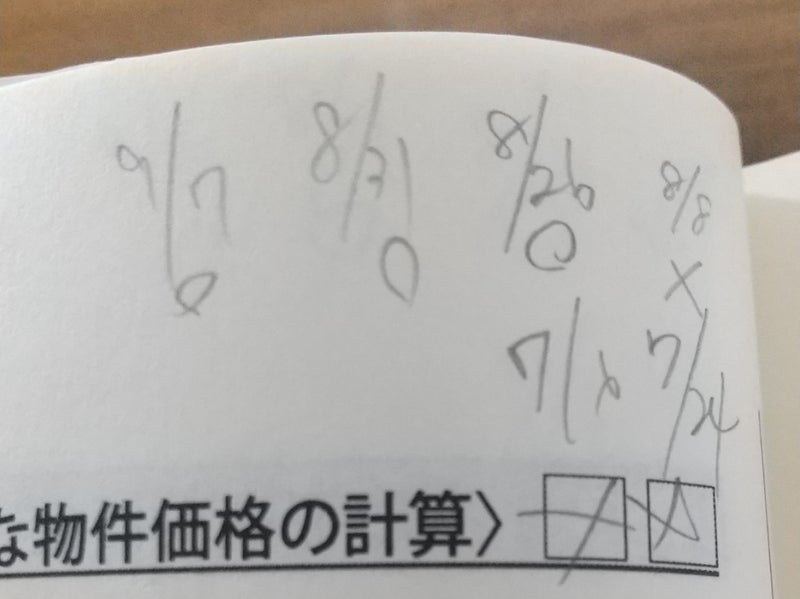 9/7 8/31 8/26 8/8
○ ○ ○ ×
7/6 7/24
な物件価格の計算〉